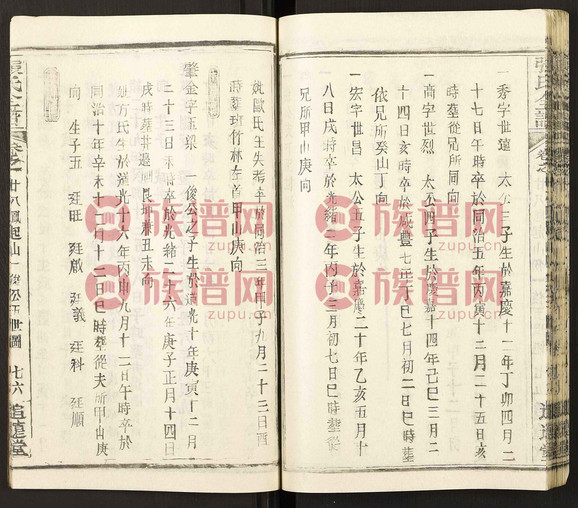 一 秀字世璮 太公三子生於嘉慶十一年丁卯四月二
十七日午時卒於同治五年丙寅十二月二十五日亥
時塟從兄所同向
一 商字世烈 太公四子生於嘉慶十四年己巳三月二
十四日亥時卒於咸豐七年丁巳七月初二日巳時塟
依兄所癸山丁向
一 宏字世昌 太公五子生於嘉慶二十年乙亥五月十
八日戌時卒於光緒二年丙子三月初七日巳時塟從
兄所甲山庚向
妣歐氏生失考卒於同治三年甲子九月二十三日酉
時塟班竹林左首甲山庚向
肇金字玉 一俊公之子生於道光十年庚寅十二月
二十三日 時卒於光緒二十六年庚子正月十四日
戌時塟 艮 丑未向
妣方氏生於道光十六年丙申九月十二日午時卒於
同治十年辛未十一月十二日巳時塟從夫所甲山庚
向 生子五 廷旺 廷啟 廷義 廷科 廷順
張氏 譜 卷之 廿八 起山 世圖 七六 追遠堂
族谱网
www.zupu.cn
族谱网
www.zupu.cn
族谱网
zupu.cn
族谱网
zupu.cn